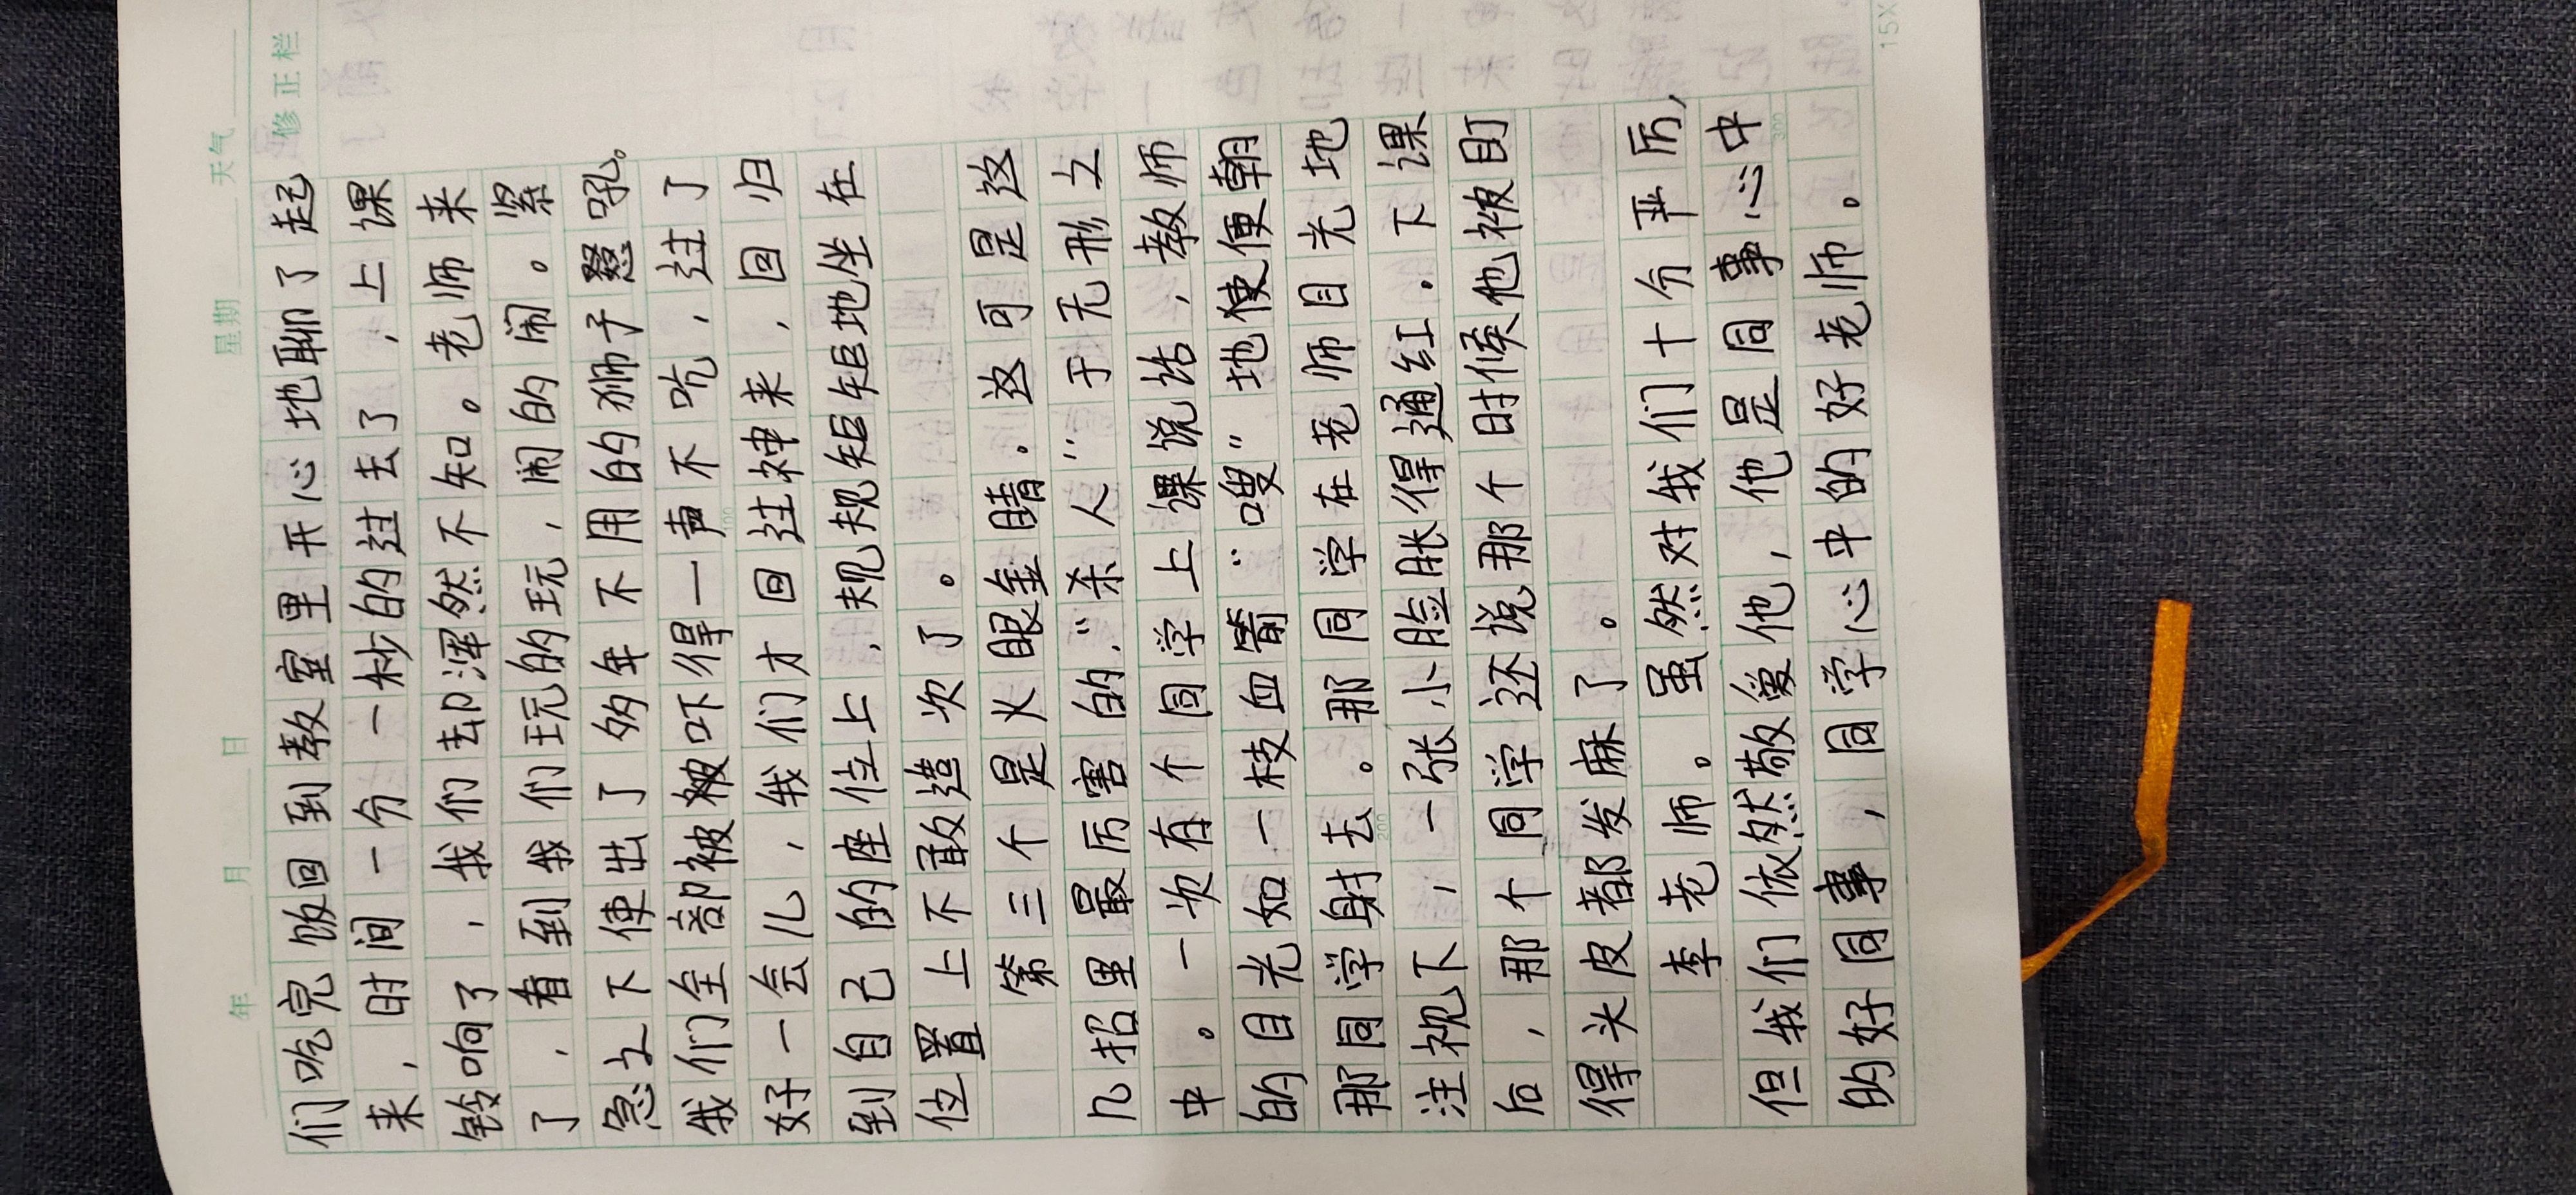 年 月 日 星期 天气
修正栏
们吃完饭回到教室里开心地聊了起
来，时间一分一秒的过去了，上课
铃响了，我们却浑然不知。老师来
了，看到我们玩的玩，闹的闹。紧
急之下使出了多年不用的狮子吼。
我们全部被吓得一声不吭，过了
好一会儿，我们才回过神来，回归
到自己的座位上，规规矩矩地坐在
位置上不敢造次了。
第三个是火眼金睛。这可是这
几招里最厉害的，“杀人”于无形之
中。一次有个同学上课说话，教师
的目光如一枝血箭“嗖”地使便朝
那同学射去。那同学在老师目光地
注视下，一张小脸胀得通红。下课
后，那个同学还说那个时候他被盯
得头皮都发麻了。
李老师。虽然对我们十分严厉，
但我们依然敬爱他，他是同事心中
的好同事，同学心中的好老师。
100
200
300